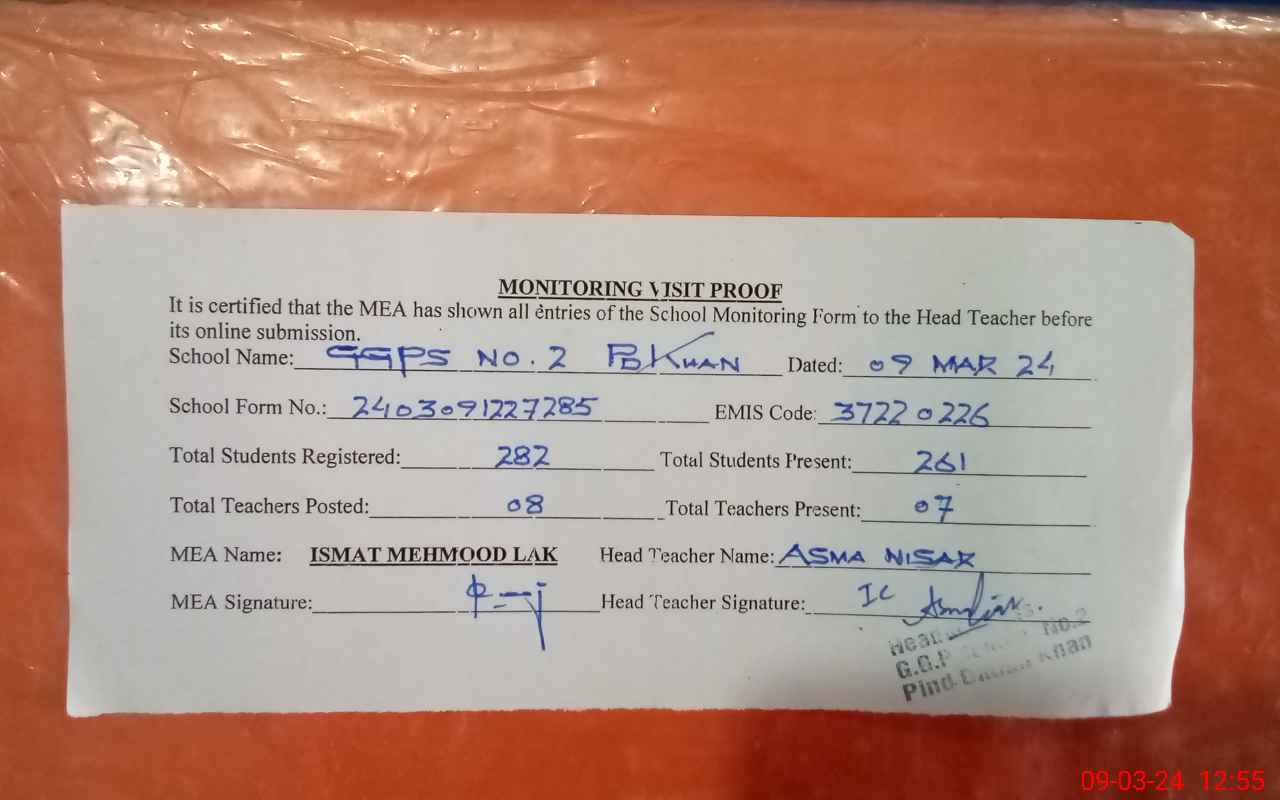 MONITORING VISIT PROOF
It is certified that the MEA has shown all entries of the School Monitoring Form to the Head Teacher before
its online submission.
School Name: GGPS NO. 2 PD KHAN Dated: 09 MAR 24
School Form No.: 2403091227285 EMIS Code: 37220226
Total Students Registered: 282 Total Students Present: 261
Total Teachers Posted: 08 Total Teachers Present: 07
MEA Name: ISMAT MEHMOOD LAK Head Teacher Name: ASMA NISAR
MEA Signature: Head Teacher Signature: IC
Head No.2
G.G.P
Pind Dadan Khan
09-03-24 12:55